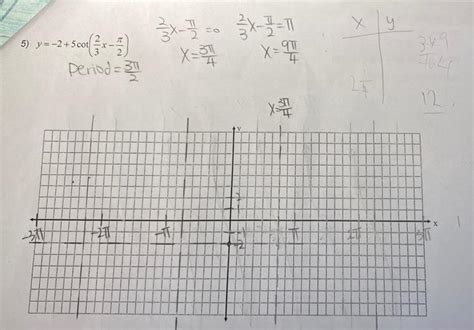 5) y = -2 + 5cot(2/3 x - π/2)
Period = 3π/2
2/3 x - π/2 = 0
x = 3π/4
2/3 x - π/2 = π
x = 9π/4
x y
12
x = 3π/4
y
x
-3π -2π -π π 2π 3π
-1
-2